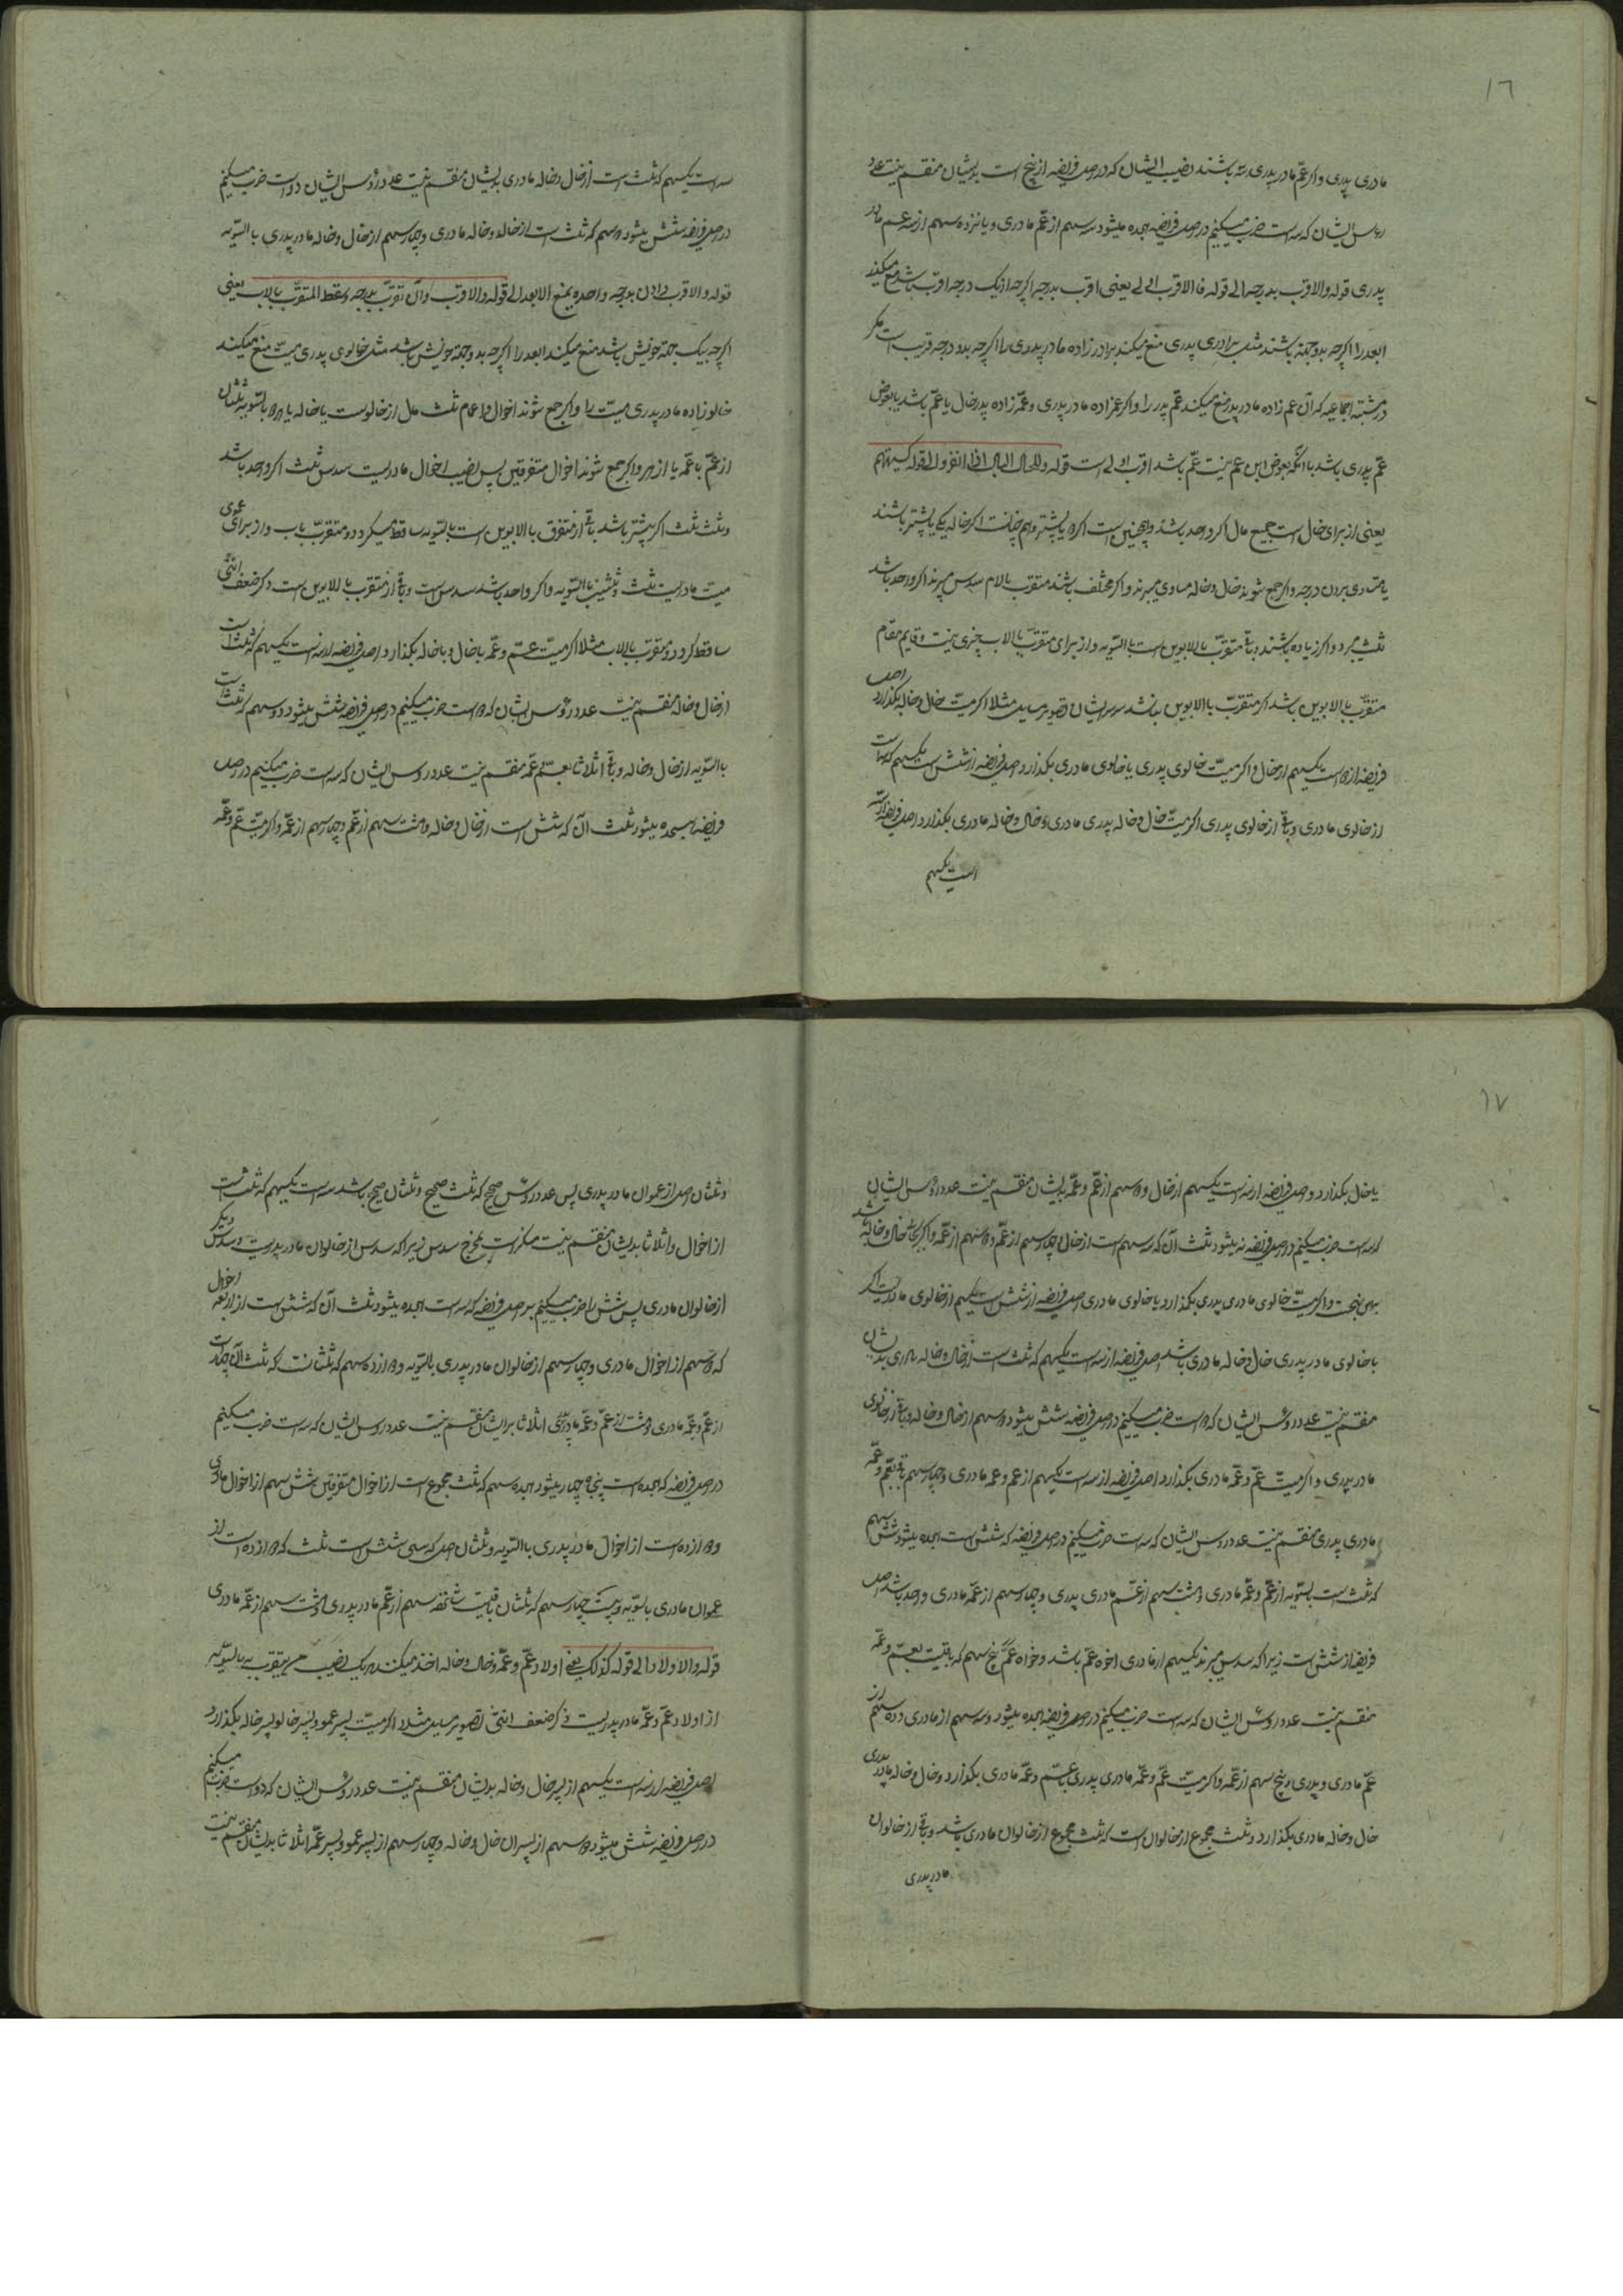 ١٦
مادری پدری و اگر عمّ مادر پدری سه باشند نصیب ایشان که در اصل فریضه از پنج است بدیشان منقسم نیست عدد
رؤس ایشان که سه است ضرب میکنیم در اصل فریضه هجده میشود سه سهم از عمّ مادری و پانزده سهم از سه عم مادر
پدری قوله والاقرب بدرجه الی قوله فالاقرب الی لی یعنی اقرب بدرجه اگرچه از یک درجه اقرب باشد منع میکند
ابعد را اگرچه بدو جهة باشند مثلا برادری پدری منع میکند برادر زاده مادر پدری را اگرچه بدو درجه قریب است مگر
در مسئله اجماعیه که آن عم زاده مادر پدر منع میکند عمّ پدر را و اگر عم زاده مادر پدری و عمّ زاده پدر خال یا عمّ باشد یا بعوض
عمّ پدری باشد یا آنکه بعوض ابن عم بنت عمّ باشد اقرب اولی است قوله وللخال المال اذا انفرد الی قوله کسیتهم
یعنی از برای خال است جمیع مال اگر واحد باشد و همچنین است اگر دو یا بیشتر و هم چنانست اگر خاله یکی یا بیشتر باشند
با مساوی بودن درجه و اگر جمع شوند خال و خاله مساوی میبرند و اگر مختلف باشند متقرب بالام سدس میبرند اگر واحد باشد
ثلث میبرد و اگر زیاده باشند و باقی متقرّب بالابوین است بالسّویه و از برای متقرّب بالاب چیزی نیست و قایم مقام
متقرّب بالابوین باشد اگر متقرّب باالابوین نباشد سرایشان تصویر مسایل مثلا اگر میّت خال و خاله بگذارد اصل
فریضه از دو است یکسهم از خال و اگر میّت خالوی پدری یا خالوی مادری بگذارد اصل فریضه از شش است یکسهم که است
از خالوی مادری و باقی از خالوی پدری اگر میّت خال و خاله پدری مادری و خال و خاله مادری بگذارد اصل فریضه از سه
است یکسهم
سه است یکسهم که ثلث است از خال و خاله مادری بدیشان منقسم نیست عدد رؤس ایشان دو است ضرب میکنیم
در اصل فریضه شش میشود دو سهم که ثلث است از خاله و خاله مادری و چهار سهم از خال و خاله مادر پدری باالسّویه
قوله والاقرب و ان بدرجه واحده یمنع الابعد الی قوله والاقرب و ان تقرّب بدرجه یسقط المتقرّب بالاب یعنی
اگرچه بیک جهة خویش باشد منع میکند ابعد را اگرچه بدو جهة خویش باشد مثل خالوی پدری میّت منع میکند
خالو زاده مادر پدری میّت را و اگر جمع شوند اخوال و اعمام ثلث مال از خالوست یا خاله یا هردو بالسّویه ثلثان
از عمّ یا عمّه یا از هر دو اگر جمع شوند اخوال متفرقین پس نصیب اخوال مادریست سدس ثلث اگر واحد باشد
و ثلث ثلث اگر بیشتر باشد باقی از متفرق باالابوین است بالسّویه ساقط میگردد و متقرّب باب و از برای عموی
میّت مادریست ثلث و ثلثین باالسّویه و اگر واحد باشد سدس است و باقی از متقرب بالابوین است ذکر ضعف انثی
ساقط گردد متقرب بالاب مثلا اگر میّت عمّ و عمّه با خال و یا خاله بگذارد اصل فریضه از سه است یکسهم که ثلث است
از خال و خاله منقسم نیست عدد رؤس ایشان که دو است ضرب میکنیم در اصل فریضه شش میشود دو سهم که ثلث است
باالسّویه از خال و خاله و باقی اثلاثا بعمّ و عمّه منقسم نیست عدد روس ایشان که سه است ضرب میکنیم در اصل
فریضه هیجده میشود ثلث آن که شش است از خال و خاله و هشت سهم از عمّ و چهار سهم از عمّه و اگر میّت عمّ و عمّه
١٧
یا خال بگذارد و اصل فریضه از سه است یکسهم از خال و دو سهم از عمّ و عمّه بدیشان منقسم نیست عدد رؤس ایشان
که سه است ضرب میکنیم در اصل فریضه نه میشود ثلث آن که سه سهم است از خال و چهار سهم از عمّ و دو سهم از عمّه و اگر بجای خال و خاله باشد
بهمین نهج است و اگر میّت خالوی مادری پدری بگذارد با خالوی مادری اصل فریضه از شش است یکسهم از خالوی مادریست اگر
با خالوی مادر پدری خال و خاله مادری باشد اصل فریضه از سه است یکسهم که ثلث است از خال و خاله مادری بدیشان
منقسم نیست عدد رؤس ایشان که دو است ضرب میکنیم در اصل فریضه شش میشود دو سهم از خال و خاله و باقی از خالوی
مادر پدری و اگر میّت عمّ و عمّه مادری بگذارد اصل فریضه از سه است یکسهم از عم و عمه مادری و چهار سهم باقی بعمّ و عمّه
مادری پدری منقسم نیست عدد روس ایشان که سه است ضرب میکنیم در اصل فریضه که شش است هجده میشود شش سهم
که ثلث است بالسّویه از عمّ و عمّه مادری و هشت سهم از عمّ مادری پدری و چهار سهم از عمّه مادری واحد باشد اصل
فریضه از شش است زیرا که سدس میبرند یکسهم از مادری خواه عمّ باشد و خواه عمّه پنج سهم که باقیست بعمّ و عمّه
منقسم نیست عدد روس ایشان که سه است ضرب میکنیم در اصل فریضه هجده میشود و سه سهم از مادری و ده سهم از
عمّ مادری و پدری و پنج سهم از عمّه و اگر میّت عمّ و عمّه مادری پدری با عمّ و عمّه مادری بگذارد و خال و خاله مادر پدری
خال و خاله مادری بگذارد و ثلث مجموع از خالوان است که ثلث مجموع از خالوان مادری باشد و باقی از خالوان
مادر پدری
و ثلثان اصل از عموان مادر پدری پس عدد روس صحیح که ثلث صحیح و ثلثان صحیح باشد سه است یکسهم که ثلث است
از اخوال و اثلاثا بدیشان منقسم نیست منکسر است بمخرج سدس زیرا که سدس از خالوان مادر پدریست و سدس دیگر
از خالوان مادری پس شش را ضرب میکنیم بر اصل فریضه که سه است هجده میشود ثلث آن که شش است از اربعه اخوال
که دو سهم از اخوال مادری و چهار سهم از خالوان مادر پدری بالسّویه دوازده سهم که ثلثانست که ثلث آن چهار است
از عمّ و عمّه مادری و هشت از عمّ و عمّه مادر پدری اثلاثا برایشان منقسم نیست عدد روس ایشان که سه است ضرب میکنیم
در اصل فریضه که هجده است پنجاه و چهار میشود هجده سهم که ثلث مجموع است از اخوال متفرقین شش سهم از اخوال مادری
و دوازده است از اخوال مادر پدری باالسّویه و ثلثان اصل که سی و شش است ثلث که دوازده است از
عموان مادری بالسّویه و بیست چهار سهم که ثلثان باقیست شانزده سهم از عمّ مادر پدری و هشت سهم از عمّه مادری
قوله والاولاد الی قوله کذلک یعنی اولاد عمّ و عمّه و خال و خاله اخذ میکنند هریک نصیب من یتقرّب به بالسّویه
از اولاد عمّ و عمّه مادر پدریست ذکر ضعف انثی تصویر مسایل مثلا اگر میّت پسر عمو و پسر خالو پسر خاله بگذارد
اصل فریضه از سه است یکسهم از پسر خال و خاله بدیشان منقسم نیست عدد روس ایشان که دو است ضرب میکنیم
در اصل فریضه شش میشود دو سهم از پسران خال و خاله و چهار سهم از پسر عمو و پسر عمّه اثلاثا بدیشان منقسم نیست